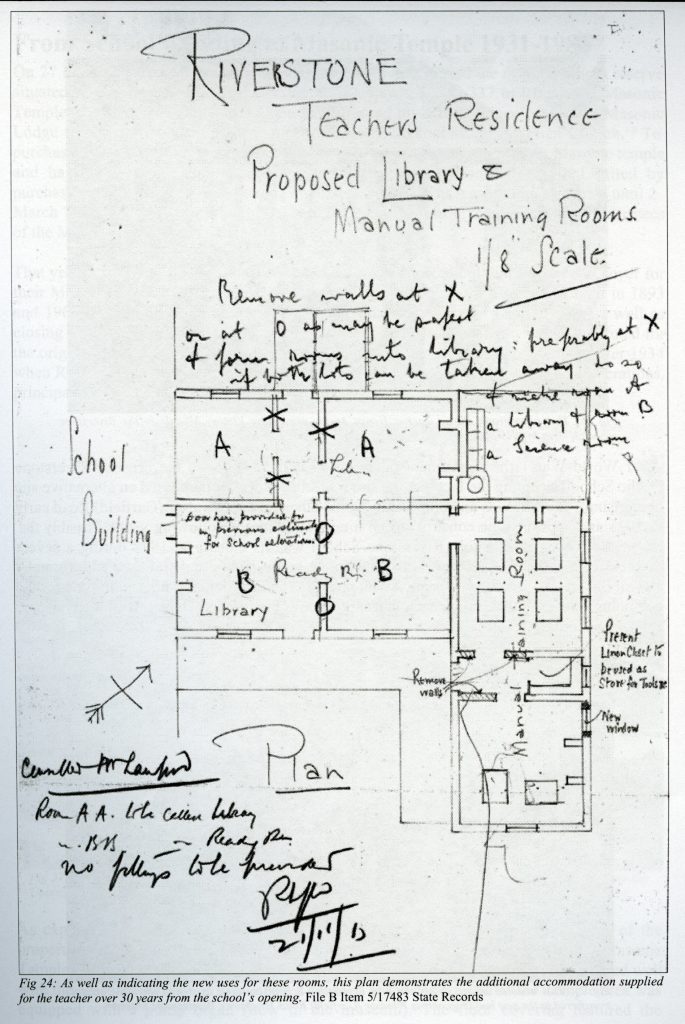 RIVERSTONE
Teachers Residence
Proposed Library &
Manual Training Rooms.
1/8" Scale.
Remove walls at X
or at O as may be safest
& form rooms into Library: preferably at X
if both lots can be taken away do so
& make room A
a library & room B
a Science room
School
Building
A
A
Doorhere provided for
in previous estimate
for School alterations
B
Ready Rm
B
Library
Manual Training Room
Remove
walls
Present
Linen Closet to
be used as
Store for Tools &c
New
window
Plan
Room A A. to be called Library
" BB " Ready Rm
no fittings to be provided
21/11/13
Fig 24: As well as indicating the new uses for these rooms, this plan demonstrates the additional accommodation supplied
for the teacher over 30 years from the school's opening. File B Item 5/17483 State Records